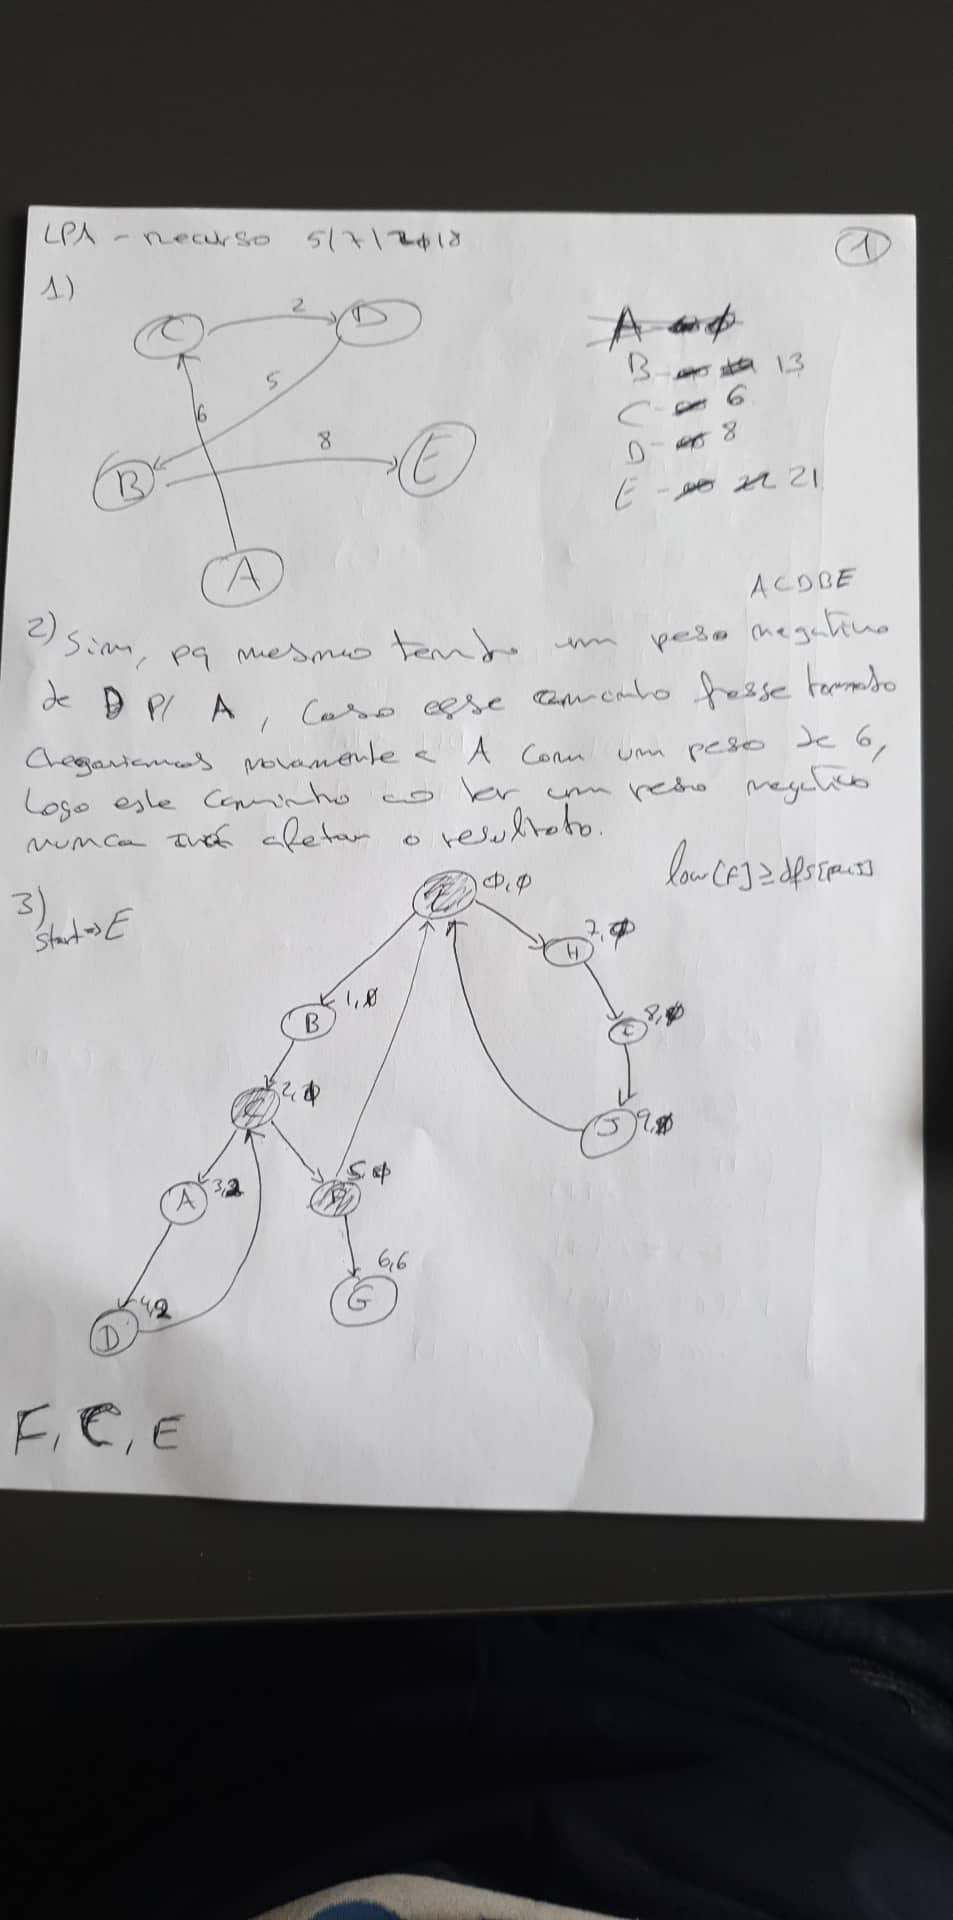 LPA - recurso 5/7/2018
1
1)
C 2 D
5
6
B 8 E
A
A ∞ 0
B - ∞ 13
C - ∞ 6
D - ∞ 8
E - ∞ 22 21
ACDBE
2) Sim, pq mesmo tendo um peso negativo
de D P/ A, caso esse caminho fosse tomado
chegariamos novamente a A com um peso de 6,
logo este caminho ao ter um peso negativo
nunca irá afetar o resultado.
3)
start => E
low[F] ≥ dfs[pai]
E 0,0
H 7,0
B 1,0
C 8,0
2,0
J 9,0
A 3,2
F 5,0
G 6,6
D 4,2
F, C, E